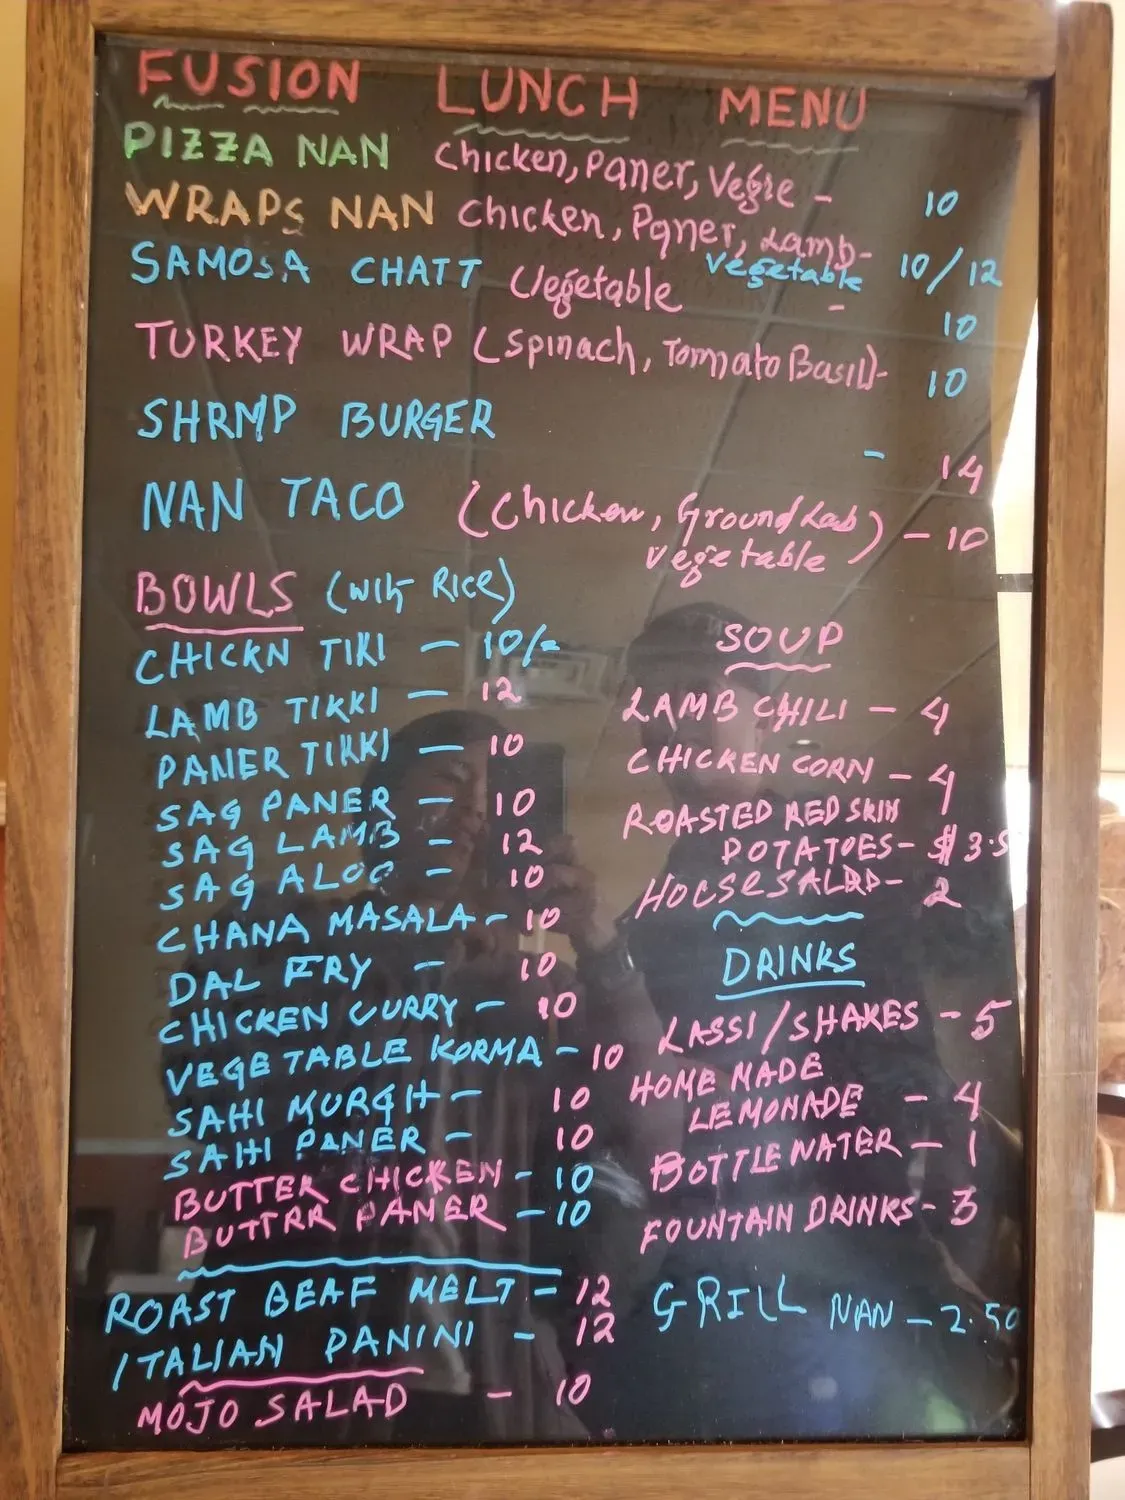 FUSION LUNCH MENU
PIZZA NAN Chicken, Paner, Veggie - 10
WRAPS NAN Chicken, Paner, Lamb- 10/12
Vegetable
SAMOSA CHATT Vegetable - 10
TURKEY WRAP (Spinach, Tomato Basil)- 10
SHRMP BURGER - 14
NAN TACO (Chicken, Ground Lab) - 10
vegetable
BOWLS (with RICE)
CHICKN TIKI - 10/=
LAMB TIKKI - 12
PANER TIKKI - 10
SAG PANER - 10
SAG LAMB - 12
SAG ALOO - 10
CHANA MASALA - 10
DAL FRY - 10
CHICKEN CURRY - 10
VEGETABLE KORMA - 10
SAHI MURGH - 10
SAHI PANER - 10
BUTTER CHICKEN - 10
BUTTRR PANER - 10
ROAST BEAF MELT - 12
ITALIAN PANINI - 12
MOJO SALAD - 10
SOUP
LAMB CHILI - 4
CHICKEN CORN - 4
ROASTED RED SKIN
POTATOES - $ 3.5
HOUSE SALAD - 2
DRINKS
LASSI/SHAKES - 5
HOME MADE
LEMONADE - 4
BOTTLE WATER - 1
FOUNTAIN DRINKS - 3
GRILL NAN - 2.50